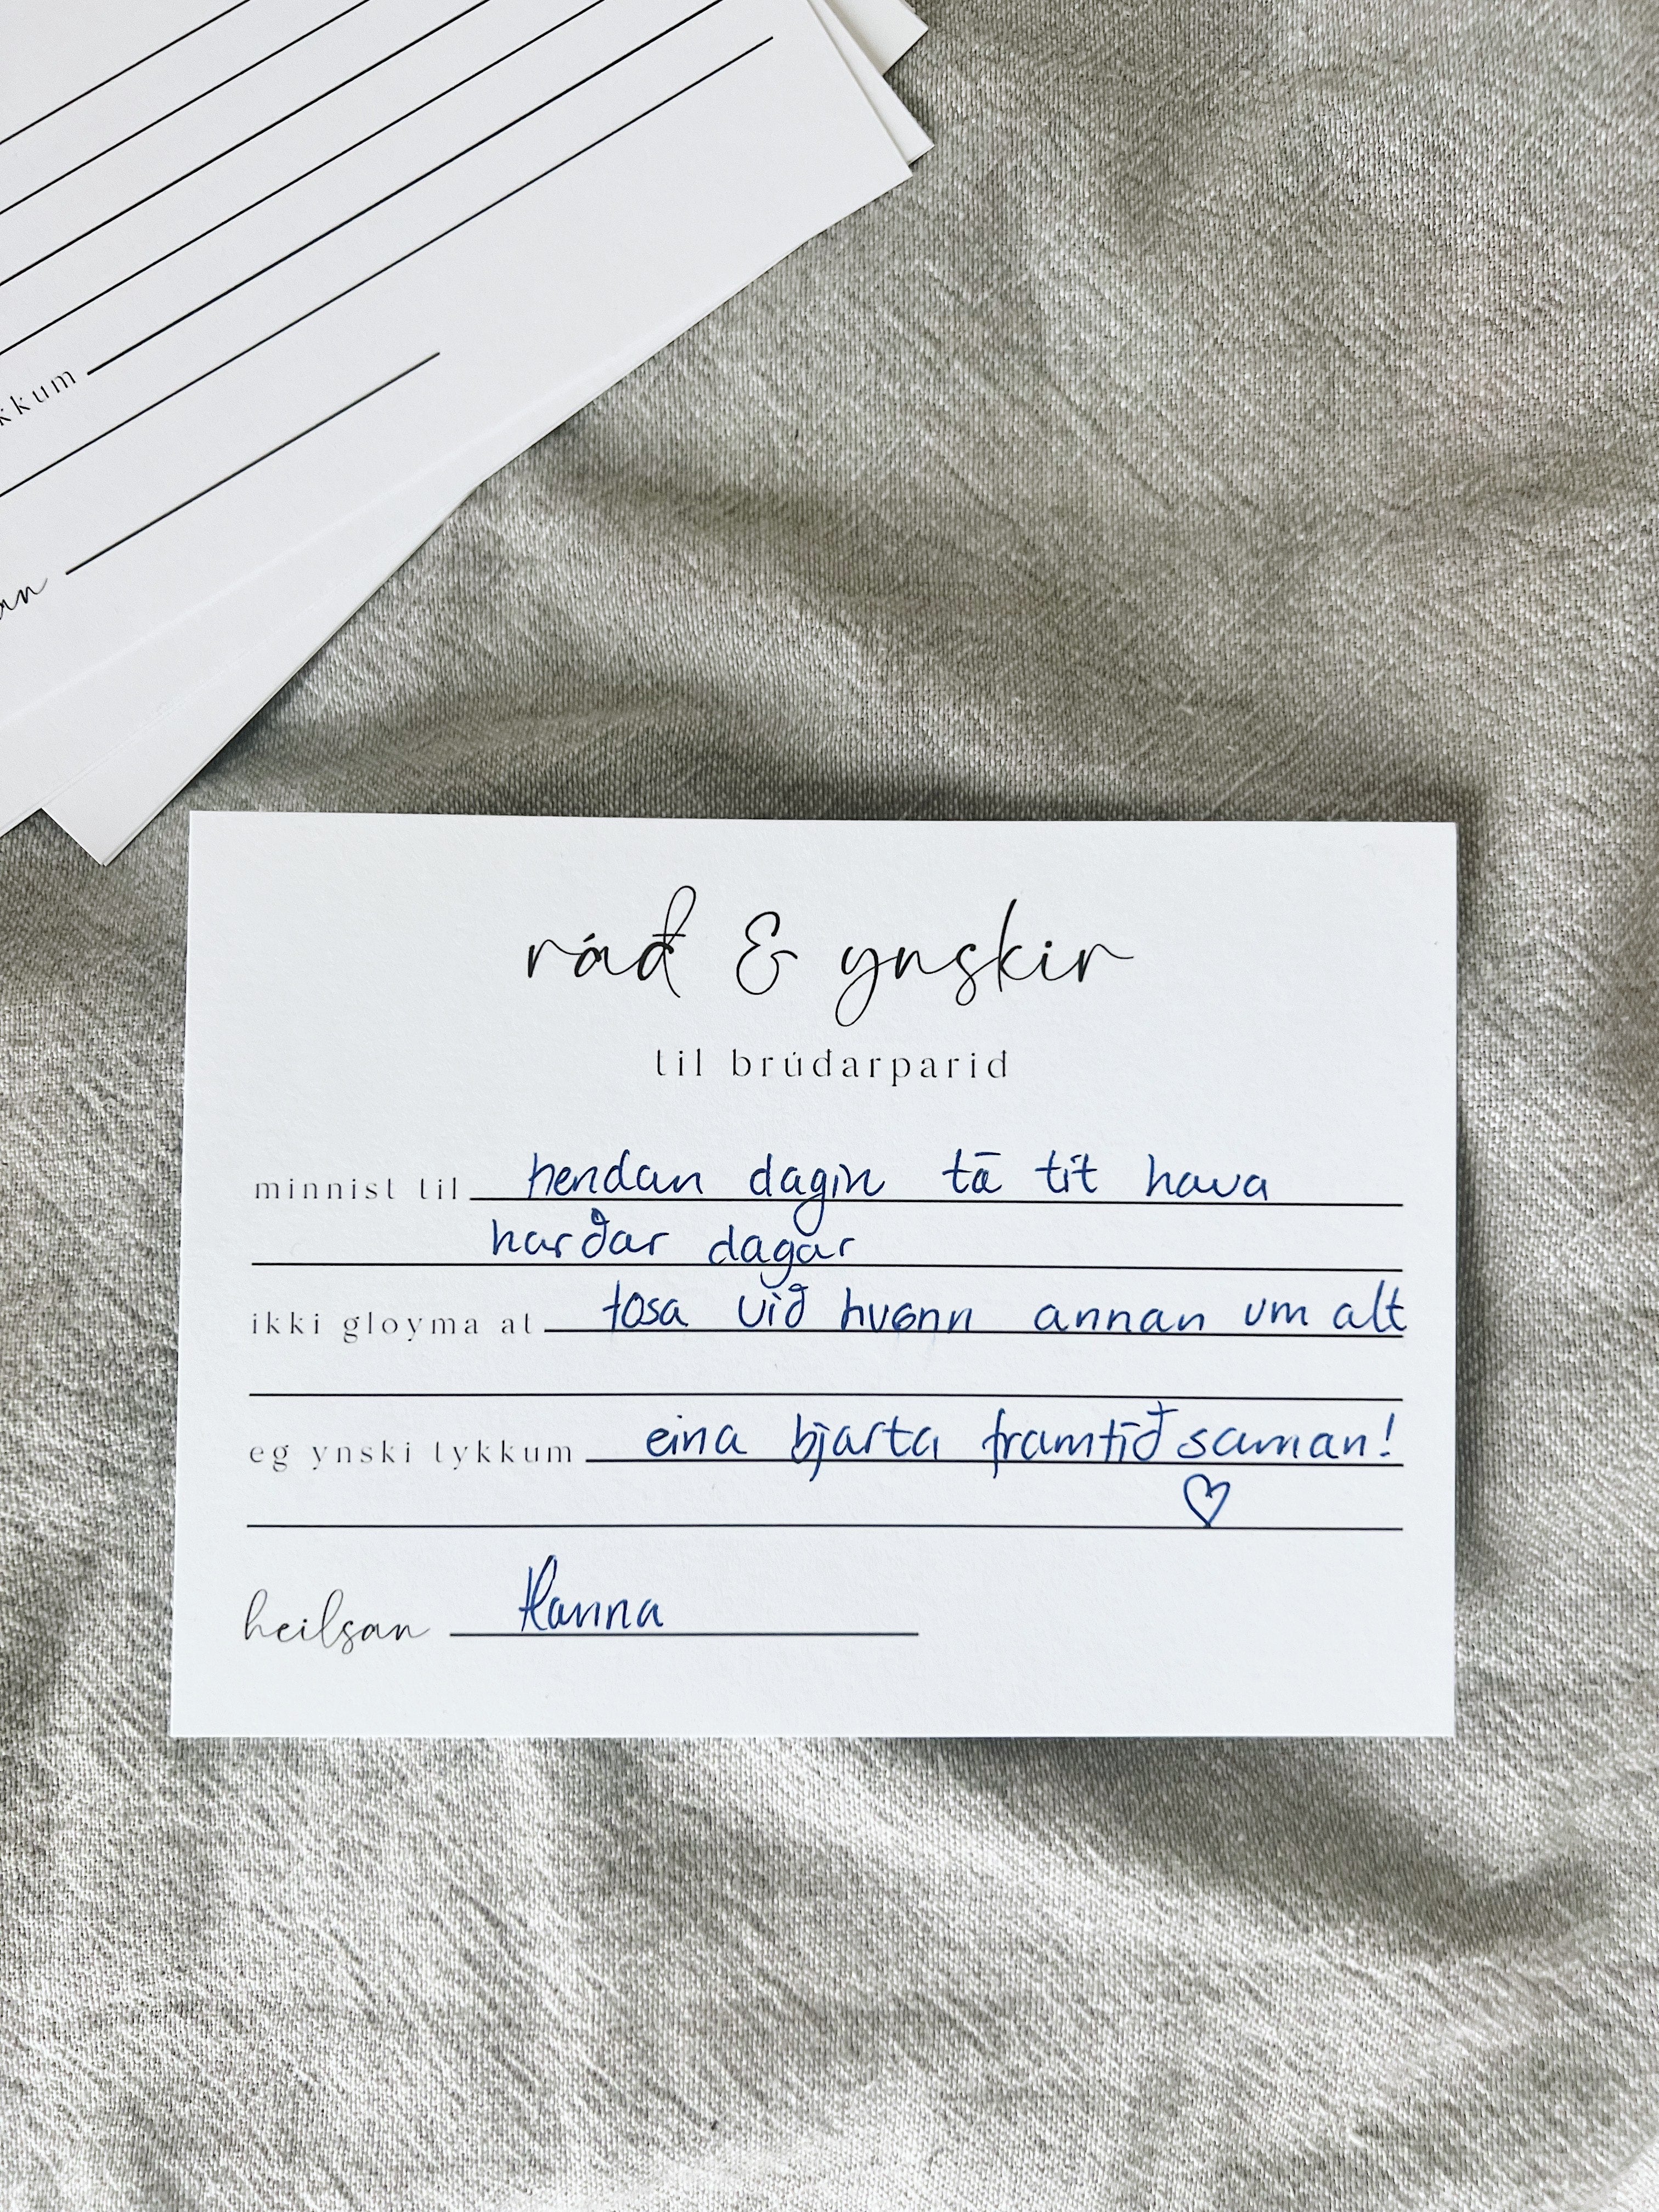 kkum
an
ráð & ynskir
til brúðarparið
minnist til hendan dagin tā tit hava
harðar dagar
ikki gloyma at tosa við hvønn annan um alt
eg ynski tykkum eina bjarta framtīð saman!
heilsan Hanna